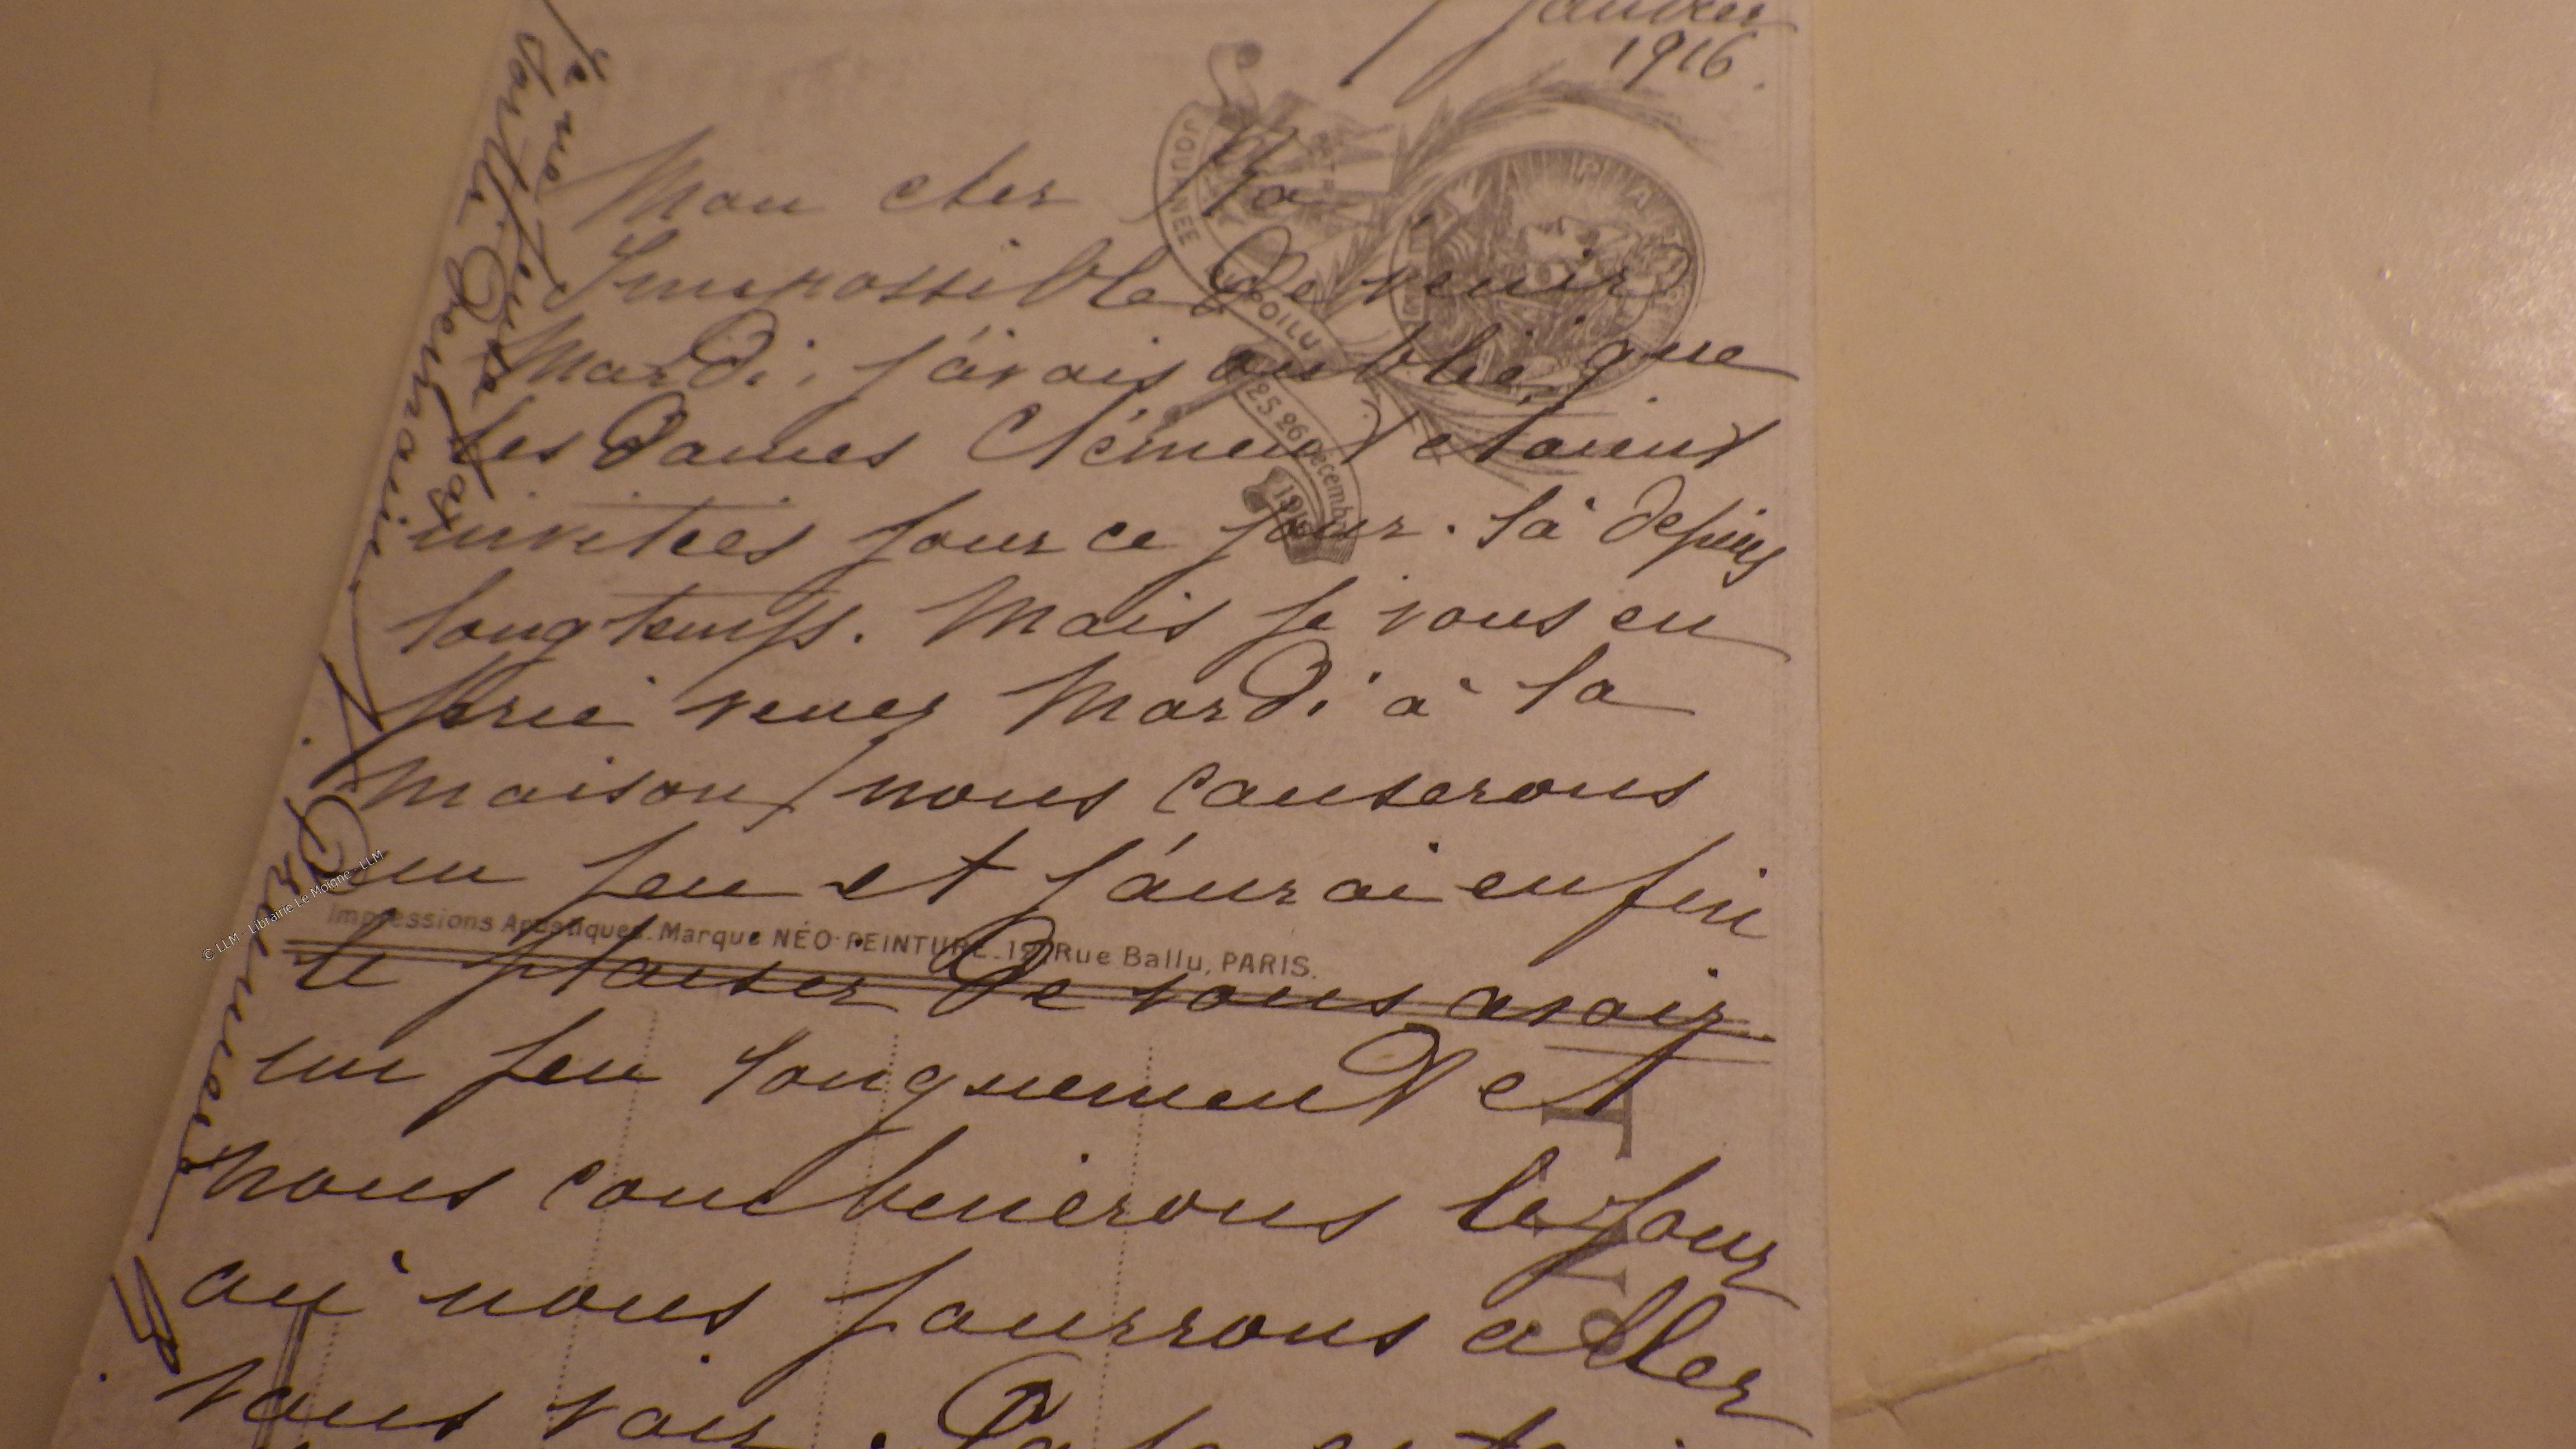 Janvier
1916.
Mon cher
Impossible de venir
Mardi, j'avais oublié que
les dames Clément étaient
invitées pour ce jour-là depuis
longtemps. Mais je vous en
prie venez Mardi à la
maison, nous causerons
un peu et j'aurai enfin
le plaisir de vous avoir
un peu longuement et
nous combinerons le jour
où nous pourrons aller
vous voir.
JOURNÉE
POILU
25 26 Décembre
Impressions Artistiques. Marque NÉO-PEINTURE_ Rue Ballu, PARIS.
© LLM - Librairie Le Moigne - LLM